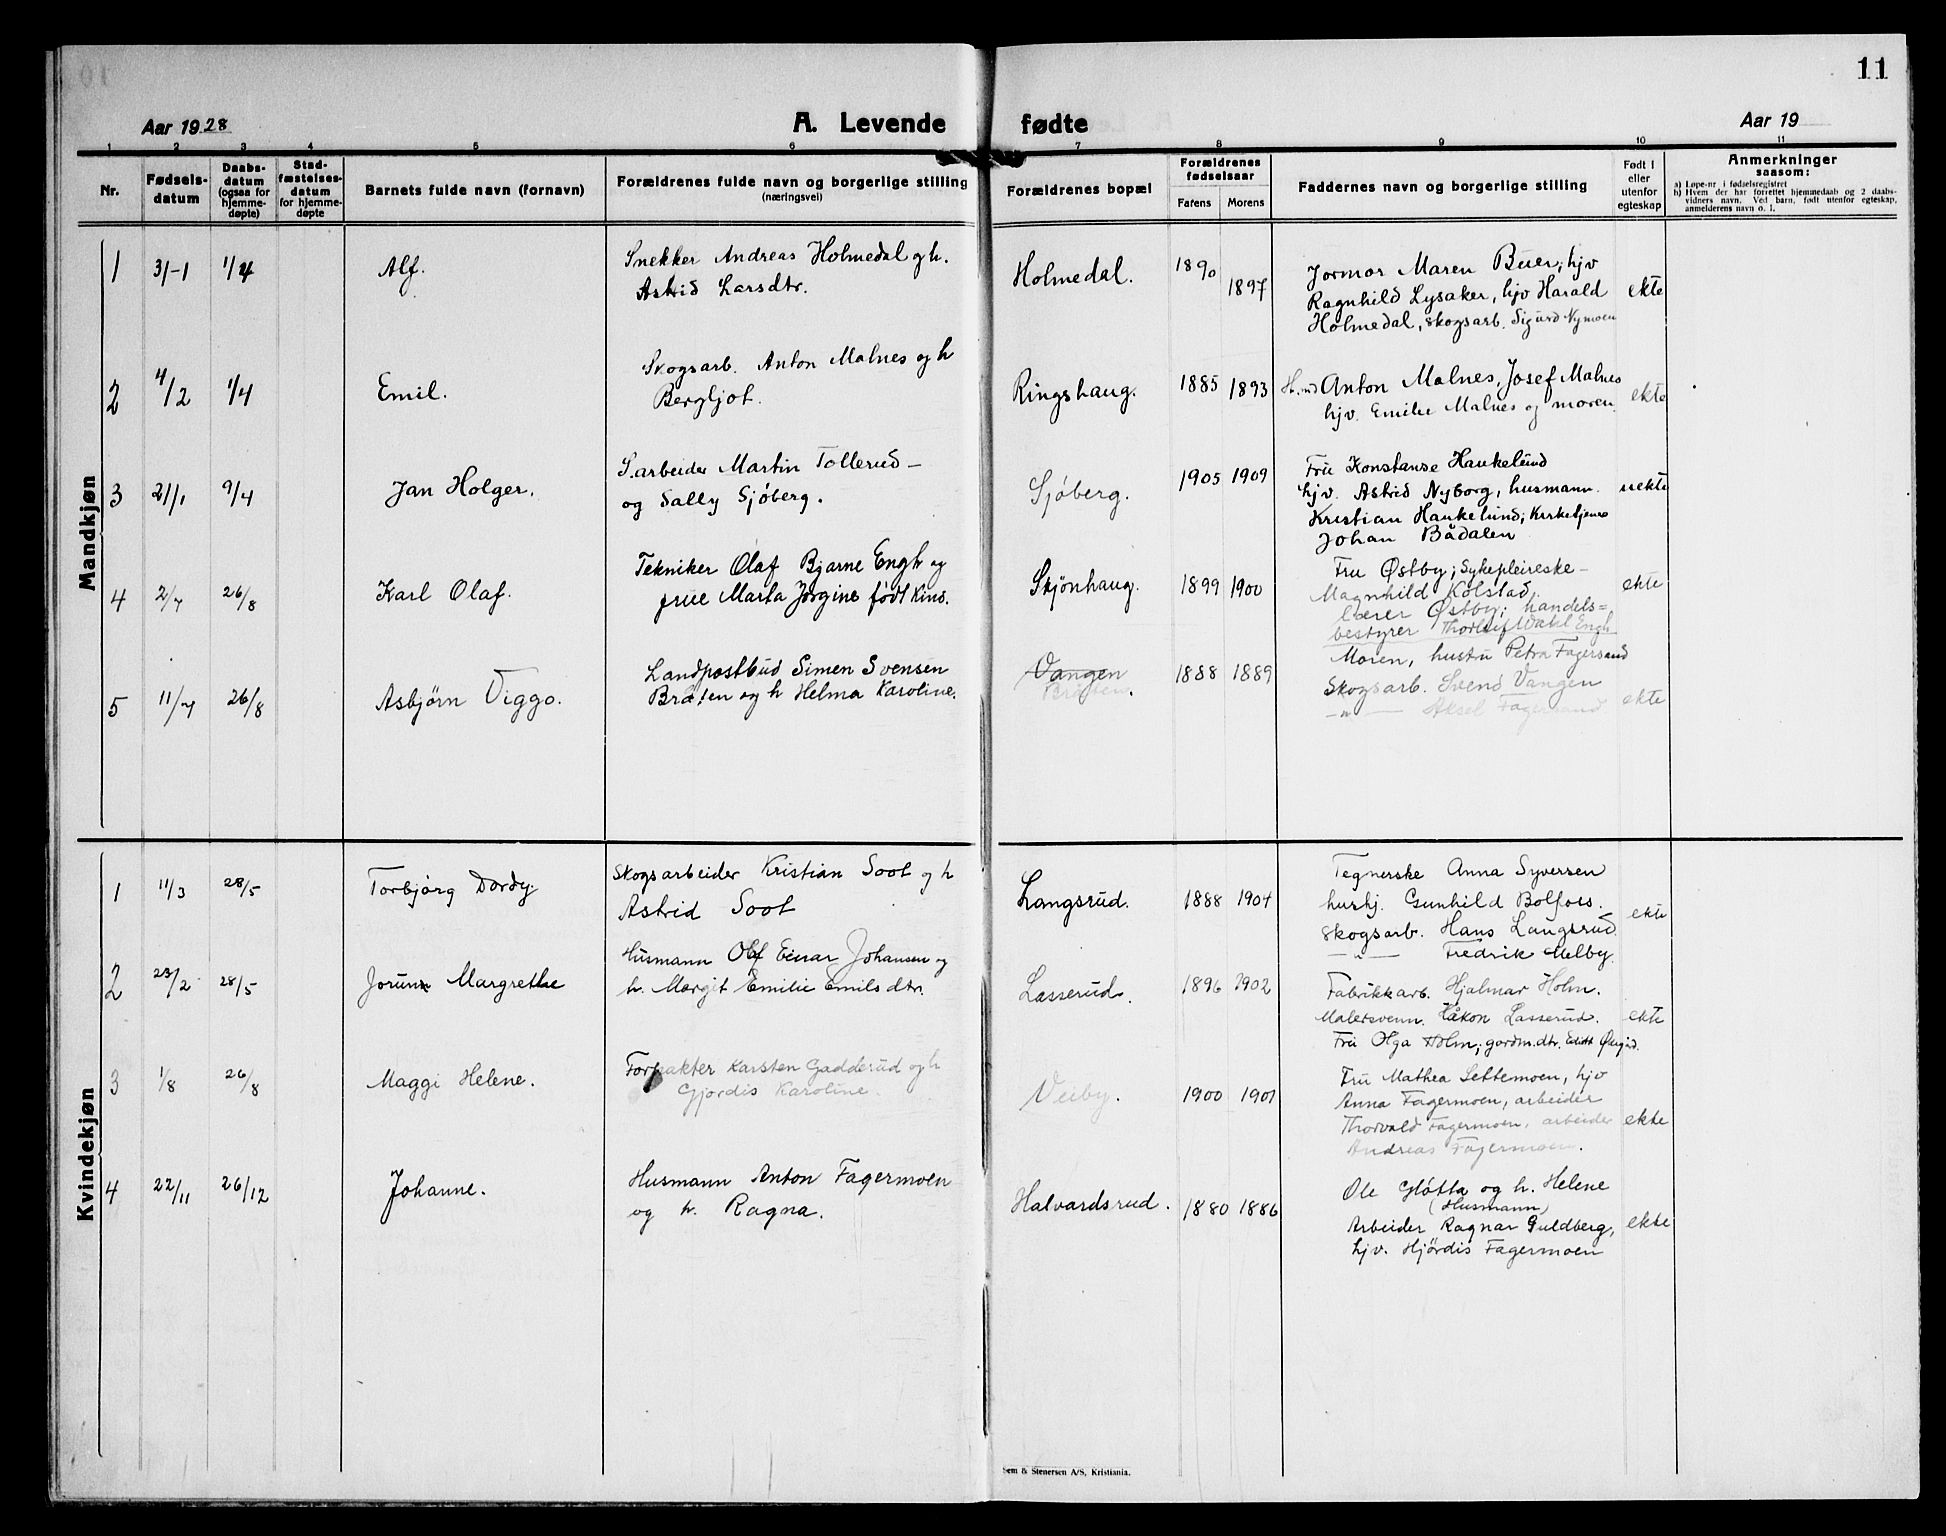 11
Aar 1928
A. Levende fødte
Aar 19
1 2 3 4 5 6 7 8 9 10 11
Nr.
Fødsels-
datum
Daabs-
datum
(ogsaa for
hjemme-
døpte)
Stad-
fæstelses-
datum
for hjemme-
døpte
Barnets fulde navn (fornavn)
Forældrenes fulde navn og borgerlige stilling
(næringsvei)
Forældrenes bopæl
Forældrenes
fødselsaar
Farens Morens
Faddernes navn og borgerlige stilling
Født i
eller
utenfor
egteskap
Anmerkninger
saasom:
a) Løpe-nr i fødselsregistret
b) Hvem der har forrettet hjemmedaab og 2 daabs-
vidners navn. Ved barn, født utenfor egteskap,
anmelderens navn o. l.
Mandkjøn
1 31-1 1/4 Alf.
Snekker Andreas Holmedal og h.
Astrid Larsdtr.
Holmedal. 1890 1897
Jormor Maren Buer, hjv
Ragnhild Lysaker, hjv Harald
Holmedal, skogsarb. Sigurd Nymoen
ekte
2 4/2 1/4 Emil.
Skogsarb. Anton Malnes og h
Bergljot.
Ringshaug. 1885 1893
Anton Malnes, Josef Malnes
hjv. Emilie Malnes og moren.
ekte
3 21/1 9/4 Jan Holger.
S.arbeider Martin Tollerud -
og Sally Sjöberg.
Sjöberg. 1905 1909
Fru Konstanse Haukelund
hjv. Astrid Nyborg, husmann.
Kristian Haukelund; Kirketjener
Johan Bådalen
uekte
4 2/7 26/8 Karl Olaf.
Tekniker Olaf Bjarne Engh og
frue Marta Jörgine født Kind.
Skjönhaug. 1899 1900
Fru Østby; Sykepleireske-
Magnhild Kolstad,
lærer Østby; handels=
bestyrer Thorleif Wahl Engh
ekte
5 11/7 26/8 Asbjørn Viggo.
Landpostbud Simen Svensen
Bråten og h Helma Karoline.
Vangen
Bråten. 1888 1889
Moren, hustru Petra Fagersand
Skogsarb. Svend Vangen
-"- Aksel Fagersand
ekte
Kvindekjøn
1 11/3 28/5 Torbjørg Dordy.
Skogsarbeider Kristian Soot og h
Astrid Soot
Langsrud. 1888 1904
Tegnerske Anna Syversen
hushj. Gunhild Bolfoss.
skogsarb. Hans Langsrud
-"- Fredrik Melby.
ekte
2 23/2 28/5 Jorunn Margrethe
Husmann Olaf Einar Johansen og
h. Margit Emilie Emilsdtr.
Lasserud. 1896 1902
Fabrikkarb. Hjalmar Holm.
Malersvenn. Håkon Lasserud.
Fru Olga Holm; gardm.dtr. Edith
ekte
3 1/8 26/8 Maggi Helene.
Forpakter Karsten Gadderud og h
Gjordis Karoline.
Veiby. 1900 1901
Fru Mathea Settemoen, hjv
Anna Fagermoen, arbeider
Thorvald Fagermoen, arbeider
Andreas Fagermoen.
ekte
4 22/11 26/12 Johanne.
Husmann Anton Fagermoen
og h. Ragna.
Halvardsrud. 1880 1886
Ole Glötta og h. Helene
(Husmann)
Arbeider Ragnar Guldberg,
hjv. Hjördis Fagermoen
ekte
Sem & Stenersen A/S, Kristiania.